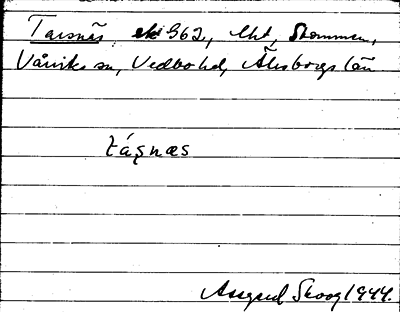 Tarsnäs, ek 962, lht, Stommen,
Vårviks sn, Vedbo hd, Älvsborgs län
táʂnæs
Assgerd Skoog 1944.